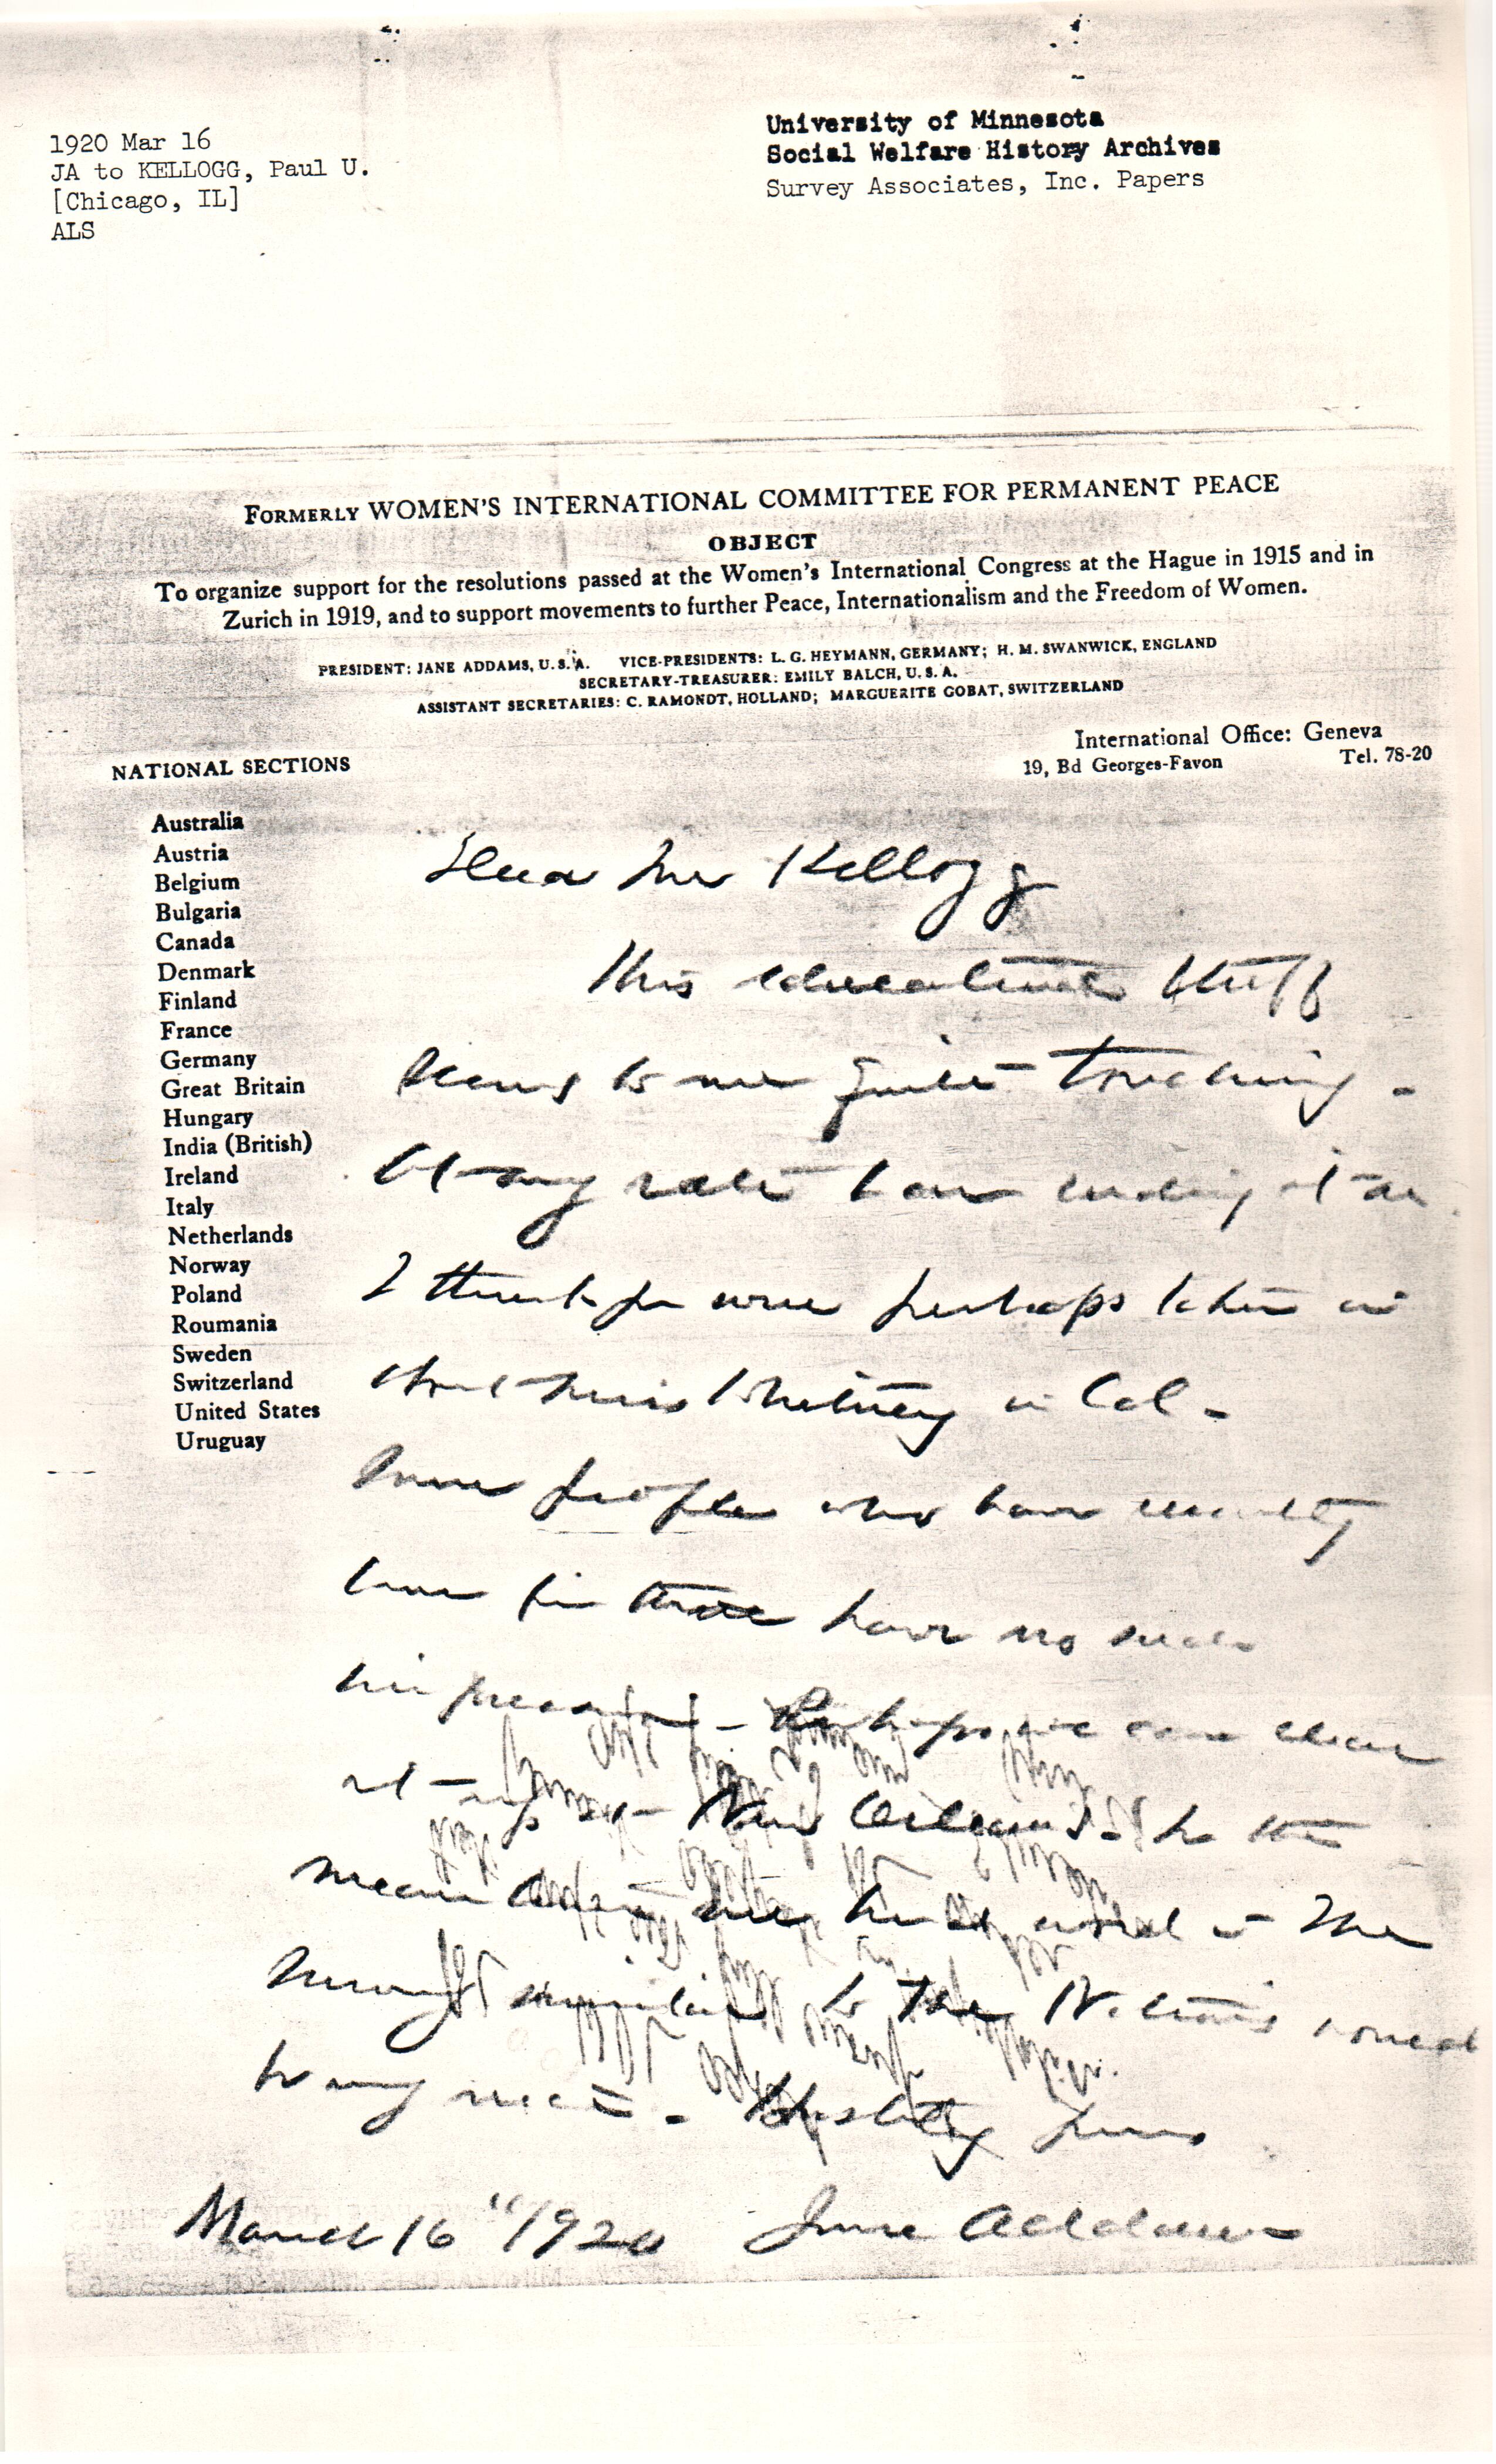 1920 Mar 16
JA to KELLOGG, Paul U.
[Chicago, IL]
ALS
University of Minnesota
Social Welfare History Archives
Survey Associates, Inc. Papers
FORMERLY WOMEN'S INTERNATIONAL COMMITTEE FOR PERMANENT PEACE
OBJECT
To organize support for the resolutions passed at the Women's International Congress at the Hague in 1915 and in
Zurich in 1919, and to support movements to further Peace, Internationalism and the Freedom of Women.
PRESIDENT: JANE ADDAMS, U.S.A. VICE-PRESIDENTS: L. G. HEYMANN, GERMANY; H. M. SWANWICK, ENGLAND
SECRETARY-TREASURER: EMILY BALCH, U. S. A.
ASSISTANT SECRETARIES: C. RAMONDT, HOLLAND; MARGUERITE GOBAT, SWITZERLAND
International Office: Geneva
19, Bd Georges-Favon Tel. 78-20
NATIONAL SECTIONS
Australia
Austria
Belgium
Bulgaria
Canada
Denmark
Finland
France
Germany
Great Britain
Hungary
India (British)
Ireland
Italy
Netherlands
Norway
Poland
Roumania
Sweden
Switzerland
United States
Uruguay
Dear Mr Kellogg
This educational stuff
seems to me quite touching -
At any rate I am sending it on
I think you were perhaps taken in
about Miss Whitney in Cal -
Some people who have recently
come from there have no such
impression - Perhaps we can clear
it up at New Orleans - In the
mean
to
to my mind - Hastily yours
March 16" 1920 Jane Addams